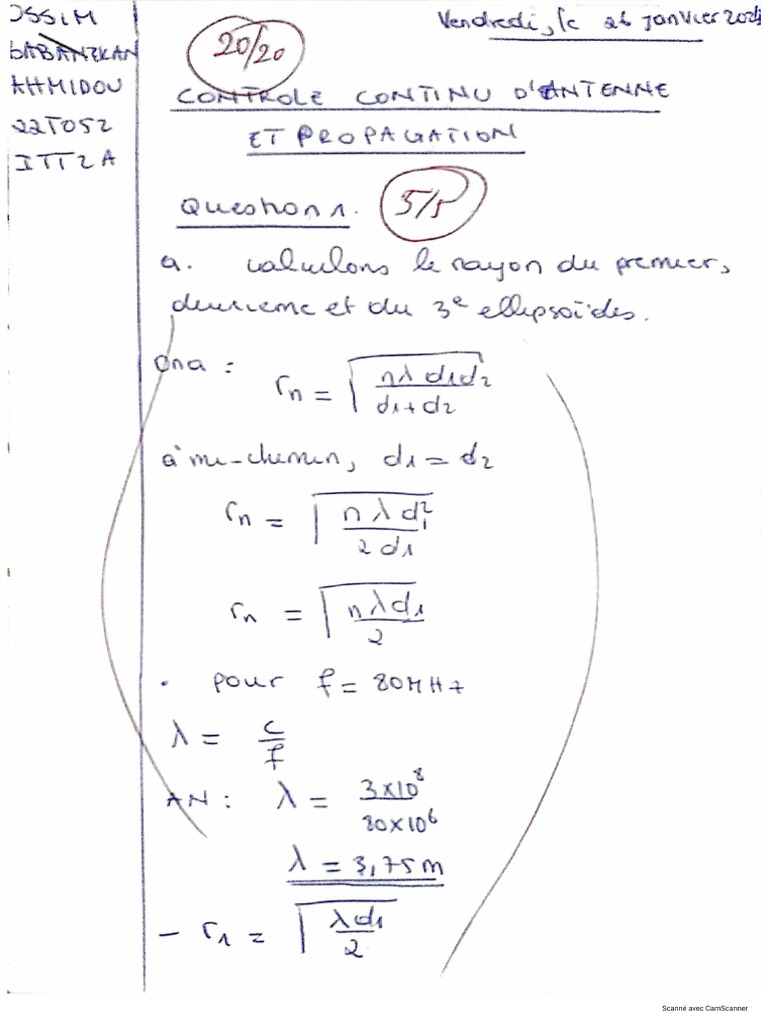 OSSIM
BABANZKAN
AHMIDOU
22T052
ITT2A
Vendredi, le 26 Janvier 2024
20/20
CONTROLE CONTINU D'ANTENNE
ET PROPAGATION
Question 1. 5/5
a. calculons le rayon du premier,
deuxieme et du 3e ellipsoïdes.
ona :
rn = √(nλ d1d2 / d1+d2)
à mi-chemin, d1 = d2
rn = √(n λ d1² / 2d1)
rn = √(nλd1 / 2)
. pour f = 80MHz
λ = c/f
AN : λ = 3×10⁸ / 80×10⁶
λ = 3,75m
- r1 = √(λd1 / 2)
Scanné avec CamScanner